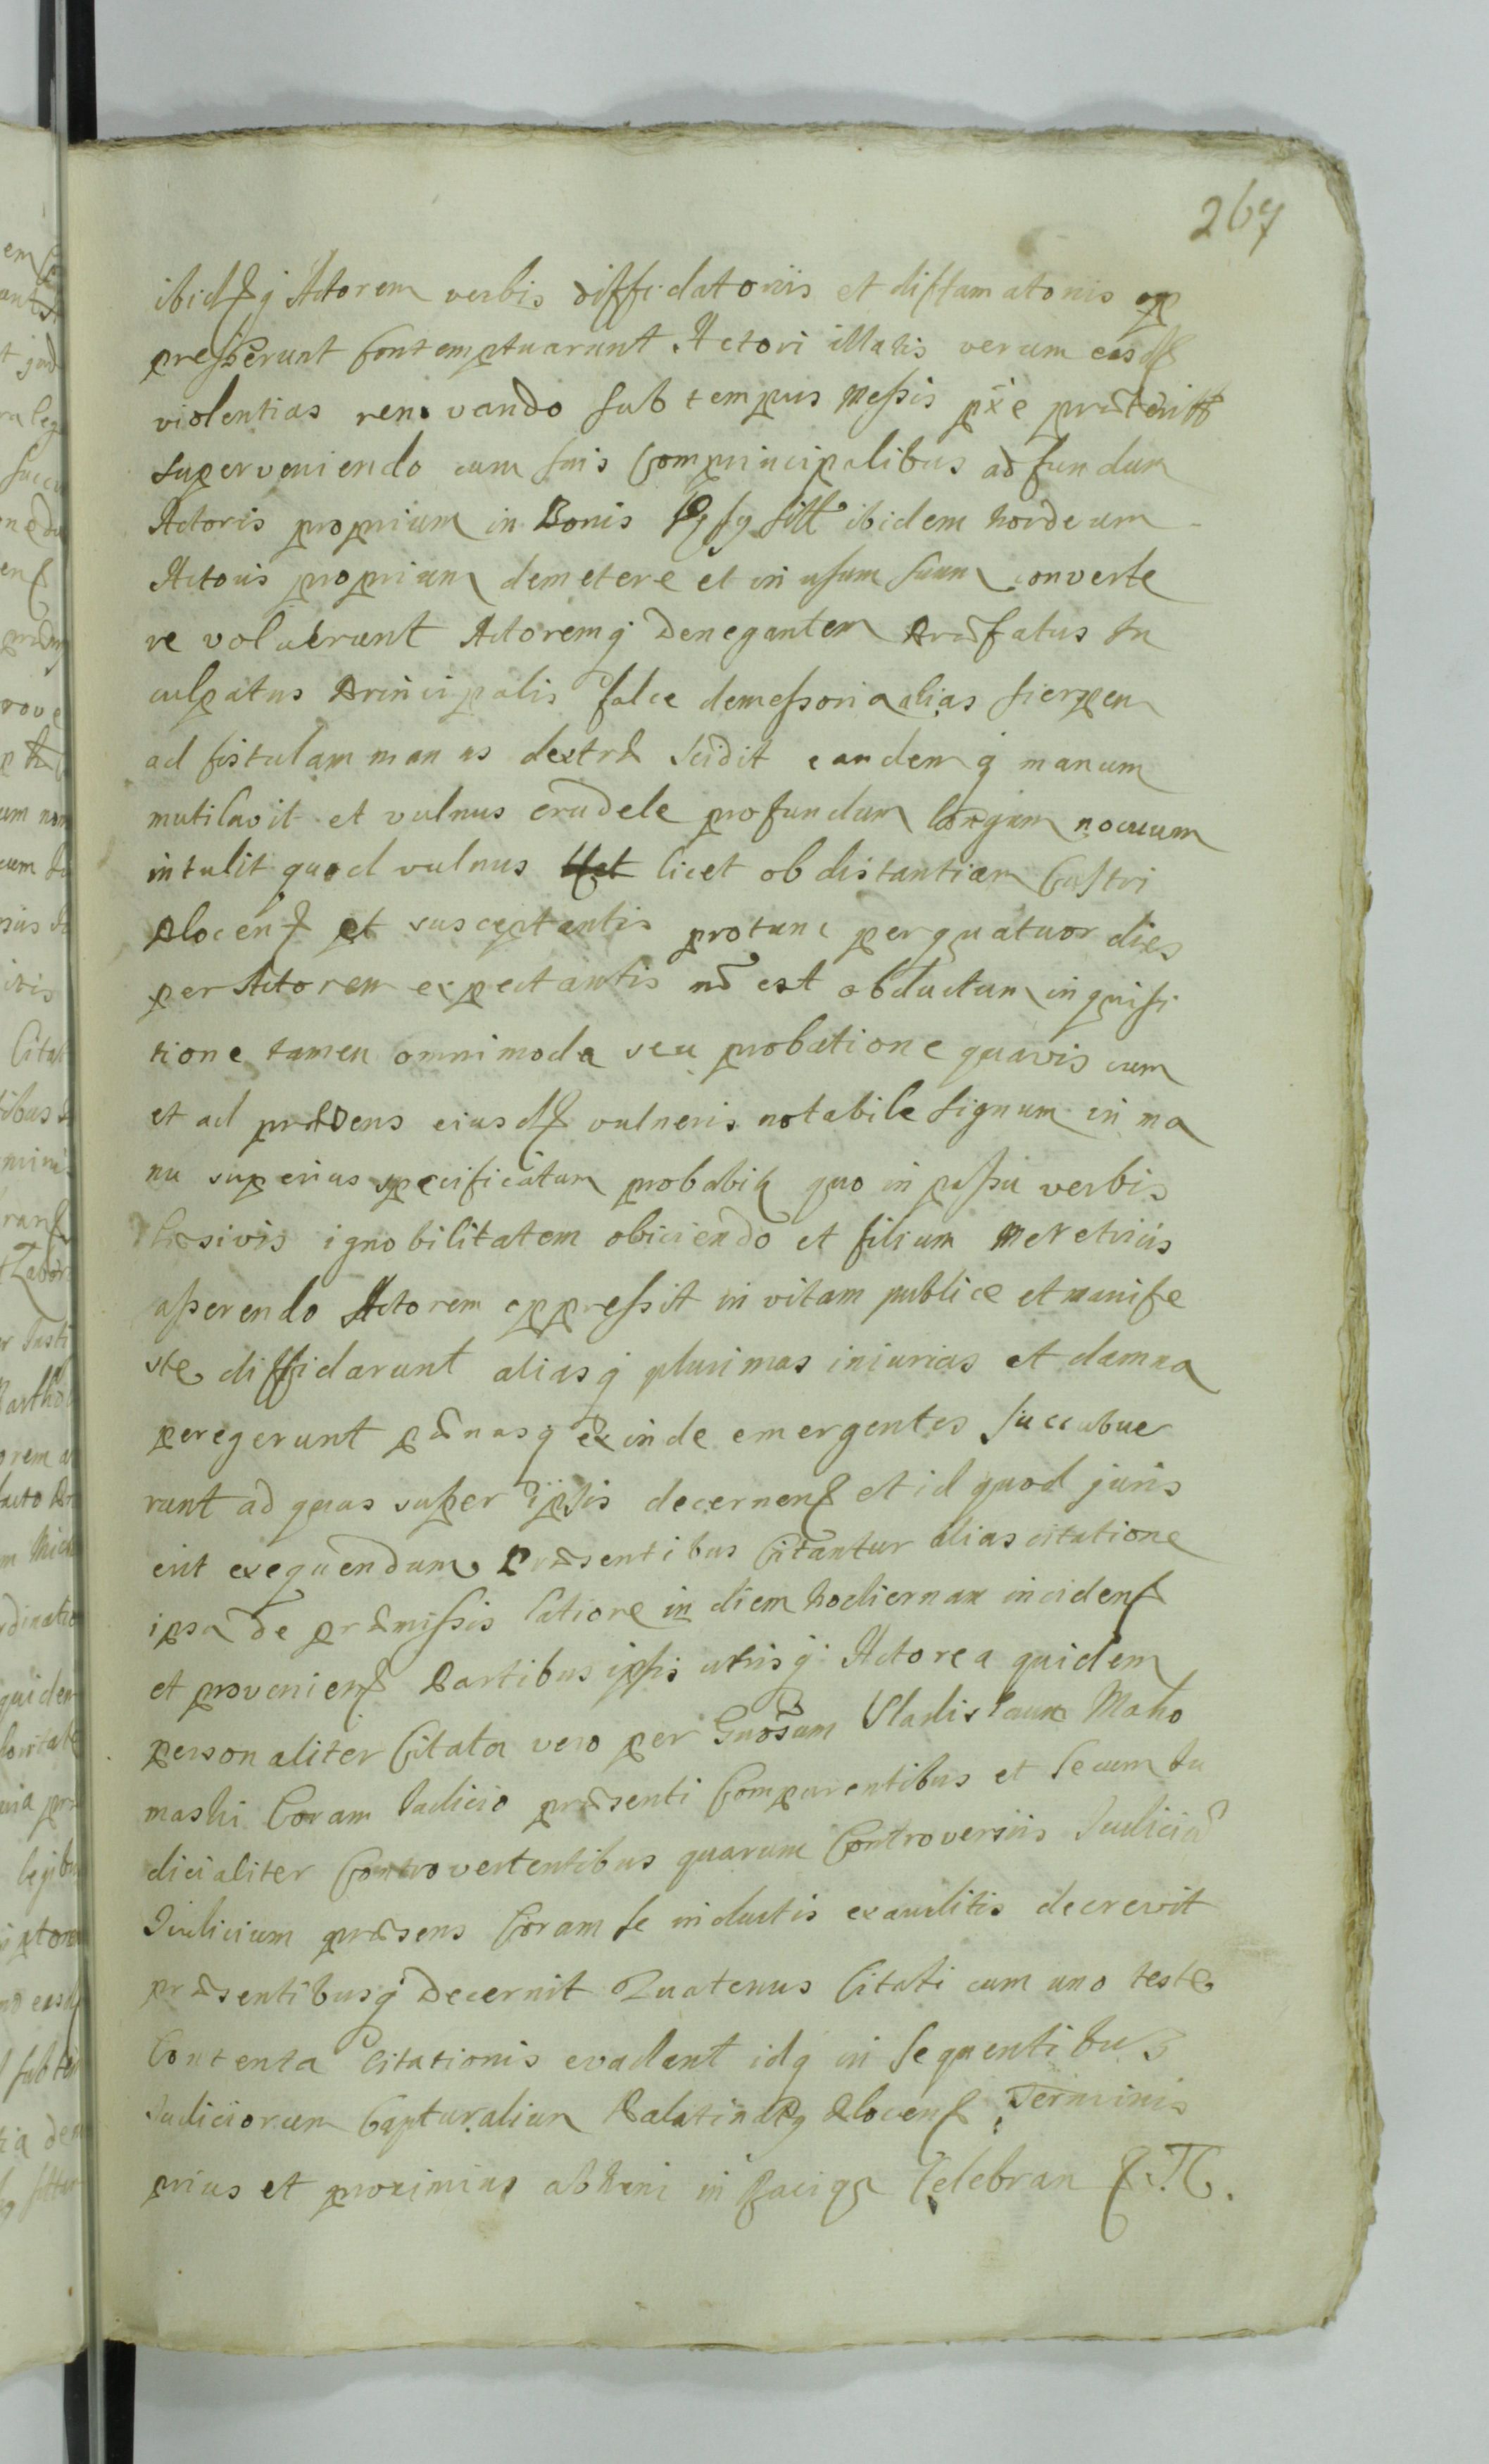 267
ibid[em]q Actorem verbis diffidatoriis et diffamatoriis op
presserunt Contemptuarunt Actori illatis verum easd
violentias renovando sub tempus Messis pxe præteritt
superveniendo cum suis Comprincipalibus ad fundum
Actoris proprium in Bonis sitt ibidem hordeum
Actoris proprium demetere et in usum suum converte
re voluerunt Actoremq denegantem Præfatus In
culpatus Principalis falce demessoria alias sierpem
ad fistulam manus dextræ scidit eandemq manum
mutilavit et vulnus crudele profundum longum nocuum
intulit quod vulnus licet ob distantiam Castri
Plocens et susceptantis protunc per quatuor dies
per Actorem expectantis nō est obductum inquisi
tione tamen omnimoda seu probatione quavis cum
et ad præsens eiusd vulneris notabile signum in ma
nu superius specificatum probabit quo in passu verbis
læsivis ignobilitatem obiiciendo et filium Meretricis
asserendo Actorem oppressit in vitam publice et manife
ste diffidarunt aliasq plurimas iniurias et damna
peregerunt pænasq exinde emergentes succubue
runt ad quas super ipsis decernens et id quod juris
erit exequendum Præsentibus Citantur alias citatione
ipsa de præmissis latiore in diem hodiernam incidens
et proveniens Partibus ipsis utrisq Actorea quidem
personaliter Citata vero per Gnosum Vladislaum Mako
maski Coram Iudicio præsenti Comparentibus et secum Iu
dicialiter Controvertentibus quarum Controversiis Iudicia
Iudicium præsens Coram se inductis exauditis decrevit
præsentibusq decernit Quatenus Citati cum uno teste
Contenta Citationis evadant idq in sequentibus
Iudiciorum Capturalium Palatinatq Plocens Terminis
prius et proximius abhinc in Raciąż Celebran